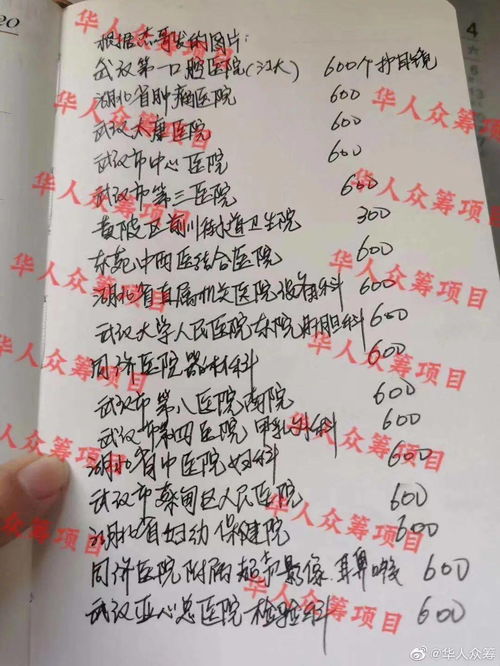 20
4
根据杰哥发的图片:
武汉第一口腔医院(江大) 600个护目镜
湖北省肿瘤医院 600
武汉大康医院 600
武汉市中心医院 600
武汉市第三医院 600
黄陂区前川街道卫生院 300
东苑中西医结合医院 600
湖北省直属机关医院设备科 600
武汉大学人民医院东院肝胆科 600
同济医院器材科 600
武汉市第八医院南院 600
武汉市第四医院甲乳外科 600
湖北省中医院妇科 600
武汉市蔡甸区人民医院 600
湖北省妇幼保健院 600
同济医院附两超声影像.耳鼻喉 600
武汉亚心总医院检验科 600
华人众筹项目
华人众筹项目
华人众筹项目
华人众筹项目
华人众筹项目
华人众筹项目
华人众筹项目
华人众筹项目
华人众筹项目
华人众筹项目
华人众筹项目
@华人众筹